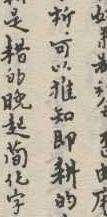 析，可以推知即耕的
是耤的晚起简化字